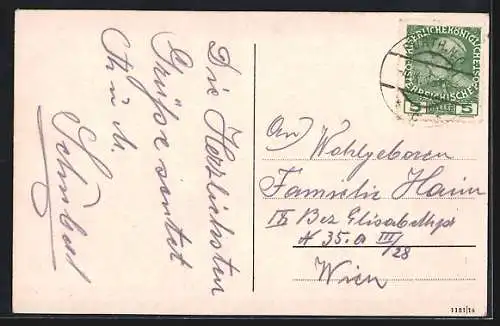 Die Herzlichsten
Grüße sendet
Schubert
KAISERLICHE KÖNIGLICHE
ÖSTERREICHISCHE
5 HELLER 5
An Wohlgeboren
Familie Haim
IV Bez Elisabethpl
N 35.a III/28
Wien
1181/14